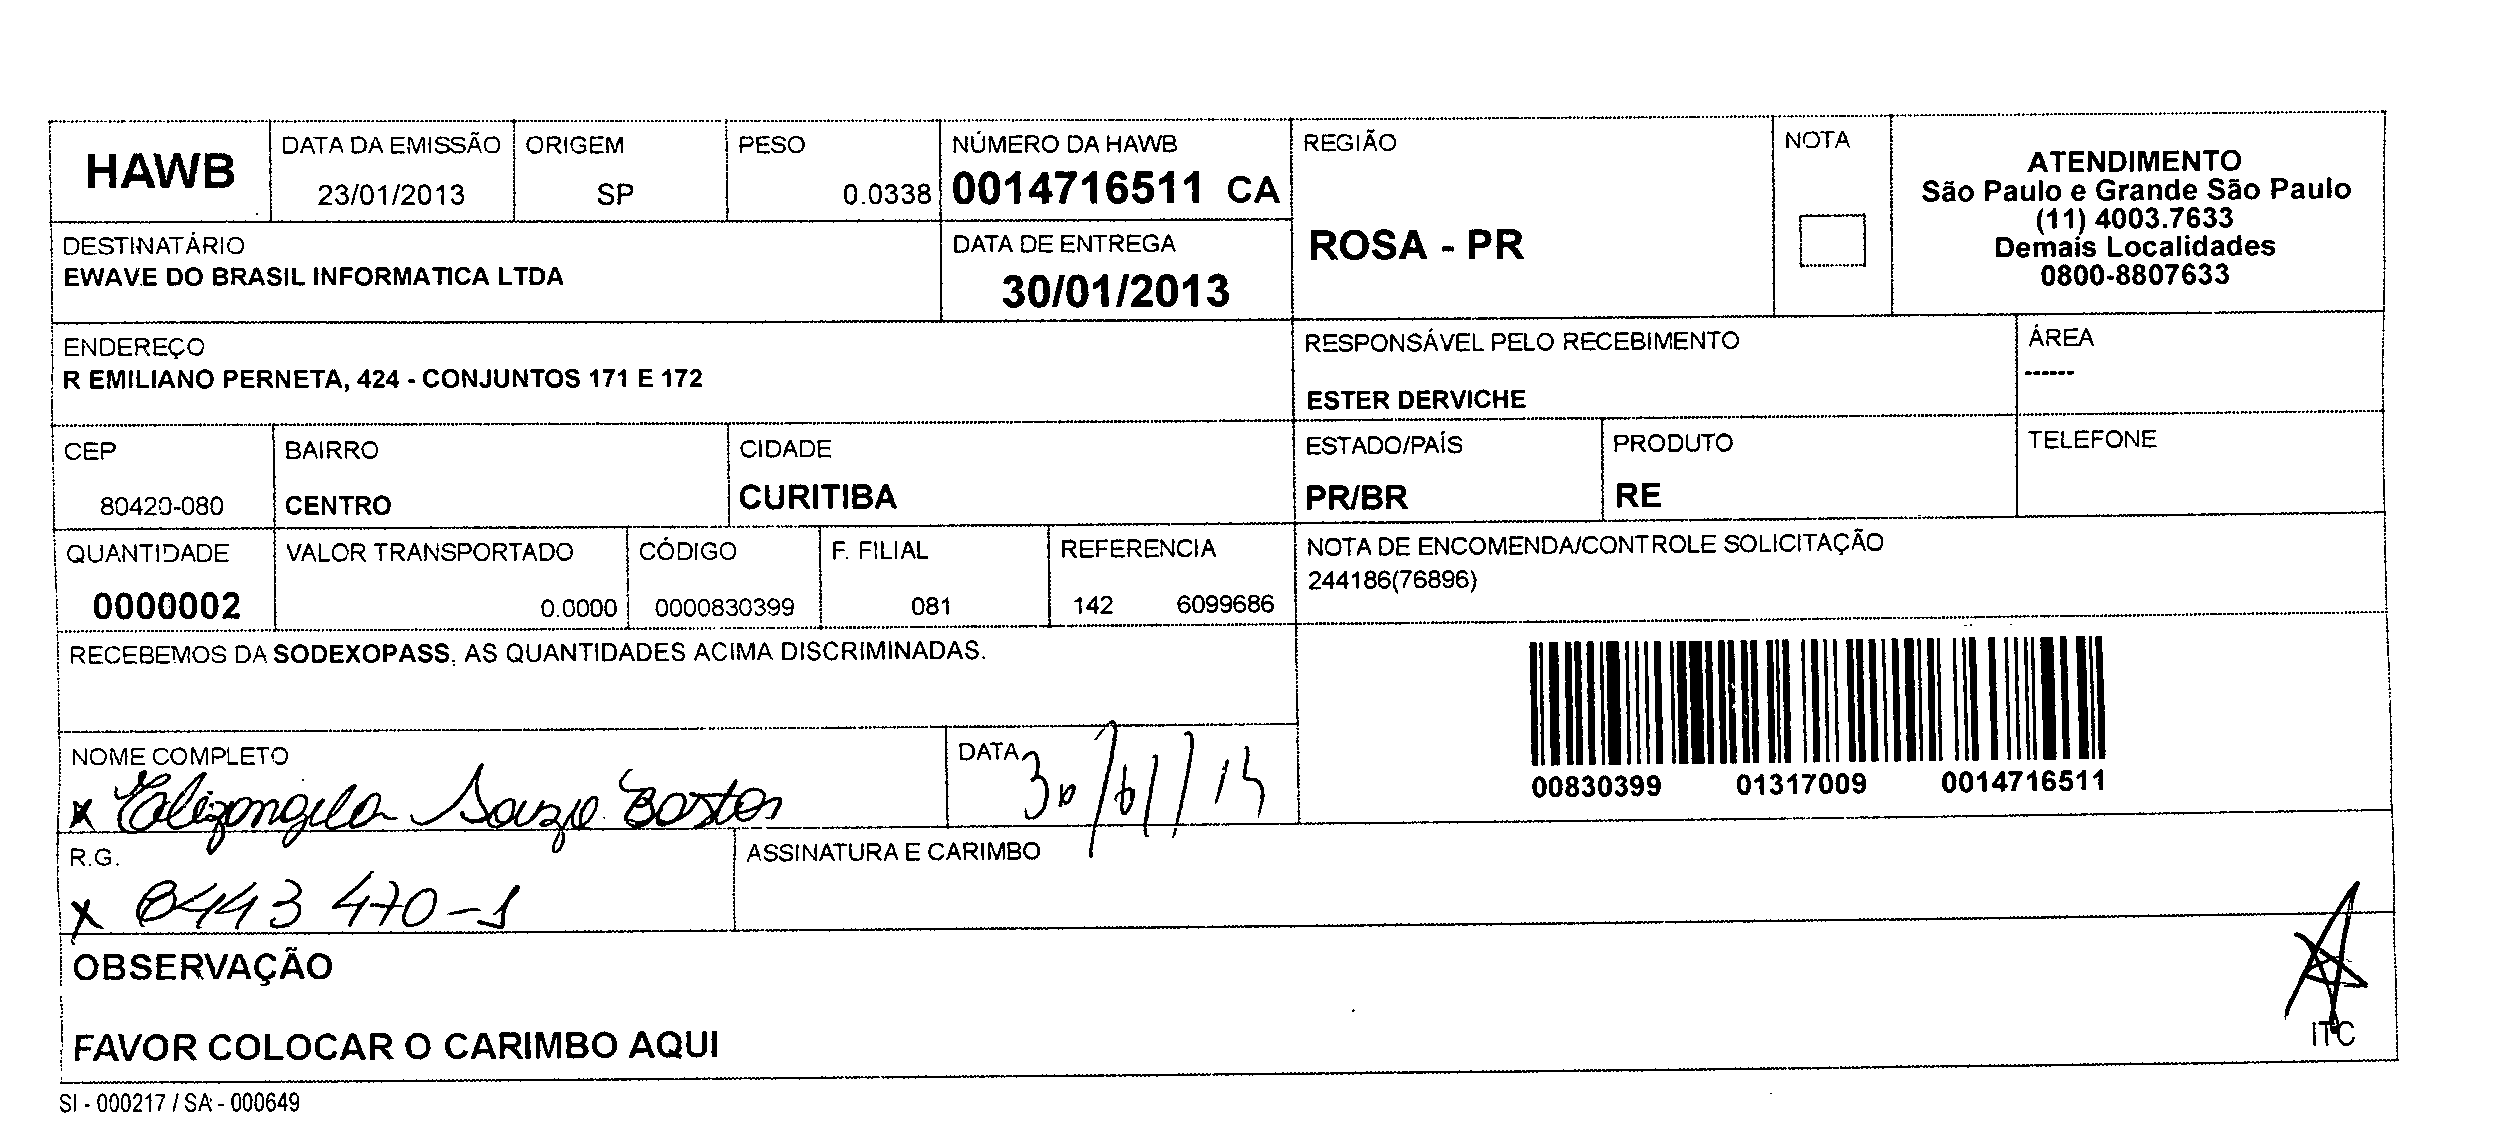 HAWB
DATA DA EMISSÃO
23/01/2013
ORIGEM
SP
PESO
0.0338
NÚMERO DA HAWB
0014716511 CA
REGIÃO
ROSA - PR
NOTA
ATENDIMENTO
São Paulo e Grande São Paulo
(11) 4003.7633
Demais Localidades
0800-8807633
DESTINATÁRIO
EWAVE DO BRASIL INFORMATICA LTDA
DATA DE ENTREGA
30/01/2013
ENDEREÇO
R EMILIANO PERNETA, 424 - CONJUNTOS 171 E 172
RESPONSÁVEL PELO RECEBIMENTO
ESTER DERVICHE
ÁREA
------
CEP
80420-080
BAIRRO
CENTRO
CIDADE
CURITIBA
ESTADO/PAÍS
PR/BR
PRODUTO
RE
TELEFONE
QUANTIDADE
0000002
VALOR TRANSPORTADO
0.0000
CÓDIGO
0000830399
F. FILIAL
081
REFERENCIA
142 6099686
NOTA DE ENCOMENDA/CONTROLE SOLICITAÇÃO
244186(76896)
RECEBEMOS DA SODEXOPASS, AS QUANTIDADES ACIMA DISCRIMINADAS.
00830399 01317009 0014716511
NOME COMPLETO
x Elizangela Souza Bastos
DATA
30/01/13
R.G.
x 8443 470-1
ASSINATURA E CARIMBO
OBSERVAÇÃO
FAVOR COLOCAR O CARIMBO AQUI
ITC
SI - 000217 / SA - 000649